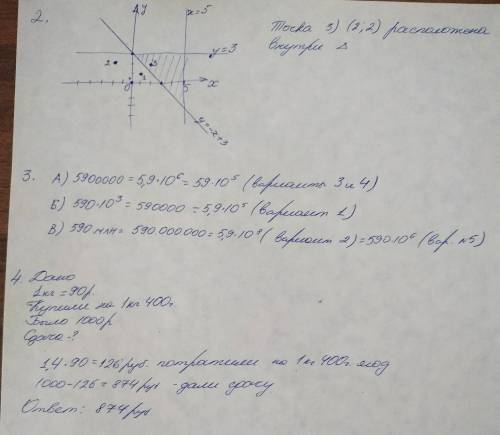 2.
y
x=5
y=3
x
y=-x+3
2
3
1
0
5
Точка 3) (2;2) расположена
внутри Δ
3. А) 5900000 = 5,9·10⁶ = 59·10⁵ (варианты 3 и 4)
Б) 590·10³ = 590000 = 5,9·10⁵ (вариант 1)
В) 590 млн = 590.000.000 = 5,9·10⁸ (вариант 2) = 590·10⁶ (вар. №5)
4. Дано
1кг = 90р.
Купили на 1кг 400г.
Было 1000р
Сдача - ?
1,4·90 = 126 руб. потратили на 1кг 400г. ягод
1000-126 = 874 руб - дали сдачу
Ответ: 874 руб